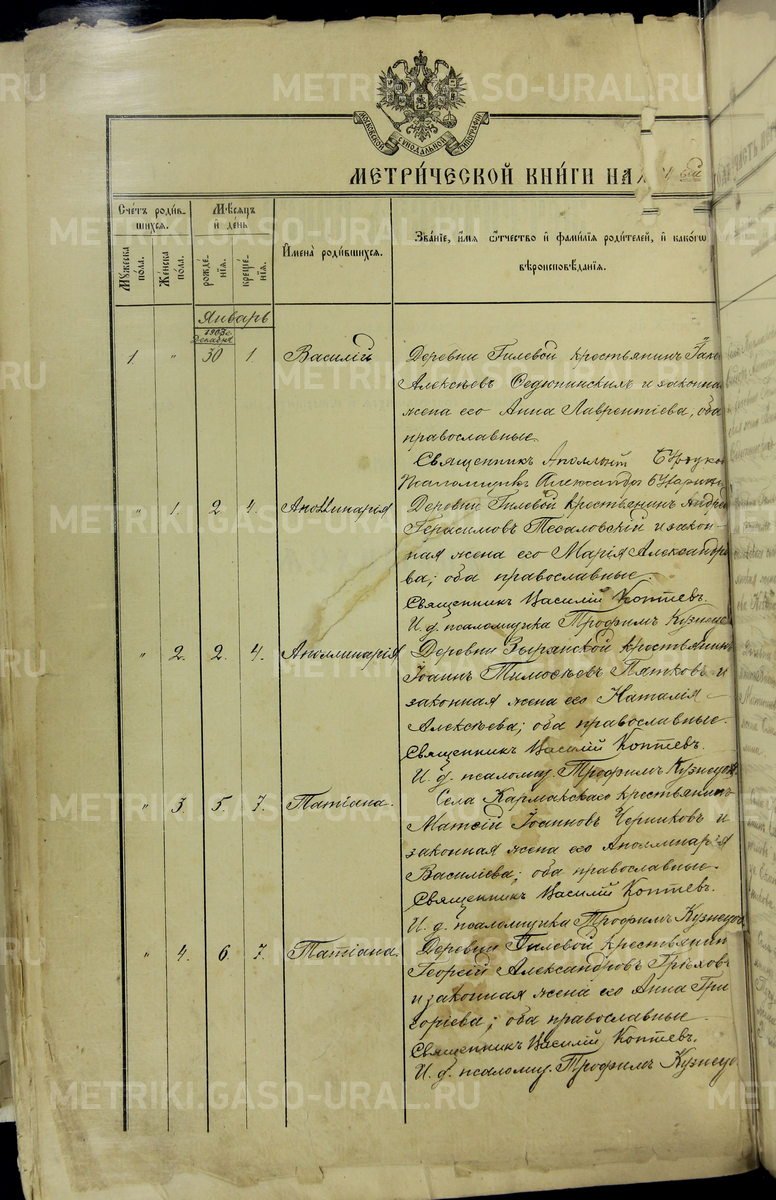 МОСКОВСКОЙ СѴНОДАЛЬНОЙ ТИПОГРАФІИ
МЕТРИ́ЧЕСКОЙ КНИ́ГИ НА
Сче́тъ роди́в-
шихся.
Мѣ́сяцъ
и҆ де́нь
И҆мена̀ роди́вшихся.
Зва́ніе, и҆́мя ѻ҆́тчество и҆ фами́лія роди́телей, и҆ како́гѡ
вѣроисповѣ́данія.
Мꙋ́жеска
по́ла.
Же́нска
по́ла.
рожде́-
нія.
креще́-
нія.
Январь
1903 г.
Декабря
1. " 30 1. Василій
Деревни Гилевой крестьянинъ
Алексѣевъ Седюпинскихъ и законна
жена его Анна Лаврентіева, оба
православные.
Священникъ
Псаломщикъ Александръ
" 1. 2 4. Аполлинарія
Деревни Гилевой крестьянинъ Андре
Герасимовъ Песаловскій и закон-
ная жена его Марія Александро
ва; оба православные.
Священникъ Василій Коптевъ.
И. д. псаломщика Трофимъ Кузнецо
" 2. 2. 4. Аполлинарія
Деревни Зырянской крестьянинъ
Іоаннъ Тимоѳеевъ Пятковъ и
законная жена его Наталія
Алексѣева; оба православные.
Священникъ Василій Коптевъ.
И. д. псаломщ. Трофимъ Кузнецовъ
" 3 5. 7. Татіана.
Села Кармакскаго крестьянинъ
Матѳій Іоанновъ Черпковъ и
законная жена его Аполлинарія
Василіева; оба православные.
Священникъ Василій Коптевъ.
И. д. псаломщика Трофимъ Кузнецовъ
" 4. 6. 7. Татіана.
Деревни Гилевой крестьянин
Георгій Александровъ Грѣхов
и законная жена его Анна Гри
горіева; оба православные.
Священникъ Василій Коптевъ.
И. д. псаломщ. Трофимъ Кузнецо
METRIKI.GASO-URAL.RU